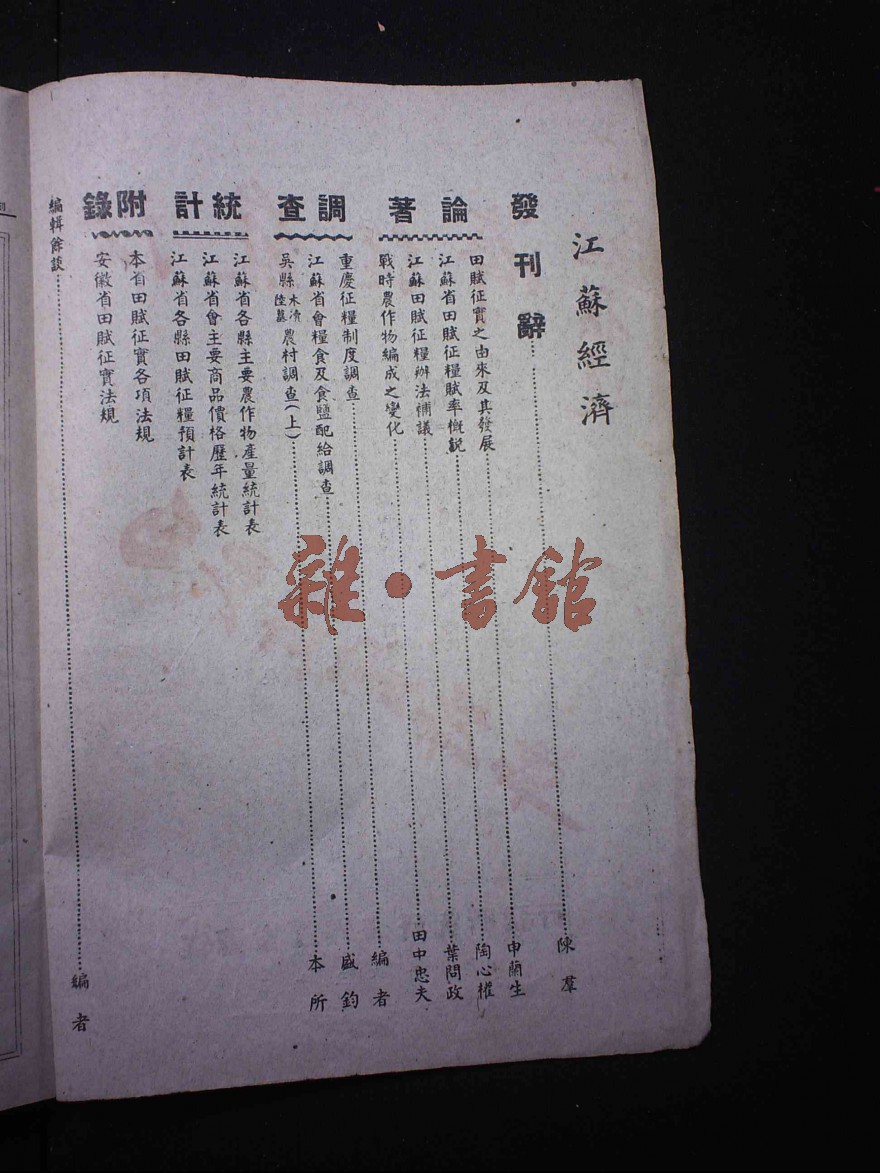 江蘇經濟
發刊辭 陳羣
論著
田賦征實之由來及其發展 申蘭生
江蘇省田賦征糧賦率概説 陶心權
江蘇田賦征糧辦法補議 葉問政
戰時農作物編成之變化 田中忠夫
調查
重慶征糧制度調查 編者
江蘇省會糧食及食鹽配給調查 盛鈞
吳縣木凟陸墓農村調查(上) 本所
統計
江蘇省各縣主要農作物產量統計表
江蘇省會主要商品價格歷年統計表
江蘇省各縣田賦征糧預計表
附錄
本省田賦征實各項法規
安徽省田賦征實法規
編輯餘談 編者
雜·書館